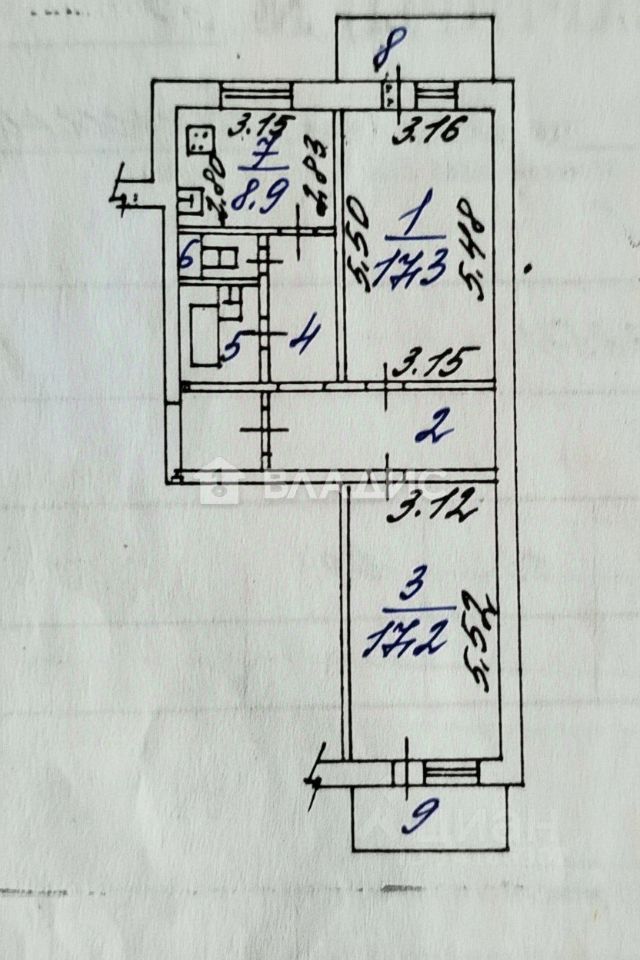 8
3.15
7
8.9
2.80
2.83
3.16
1
17,3
5.50
5.48
3.15
6
5
4
2
ВЛАДИС
3.12
3
17,2
5.52
9